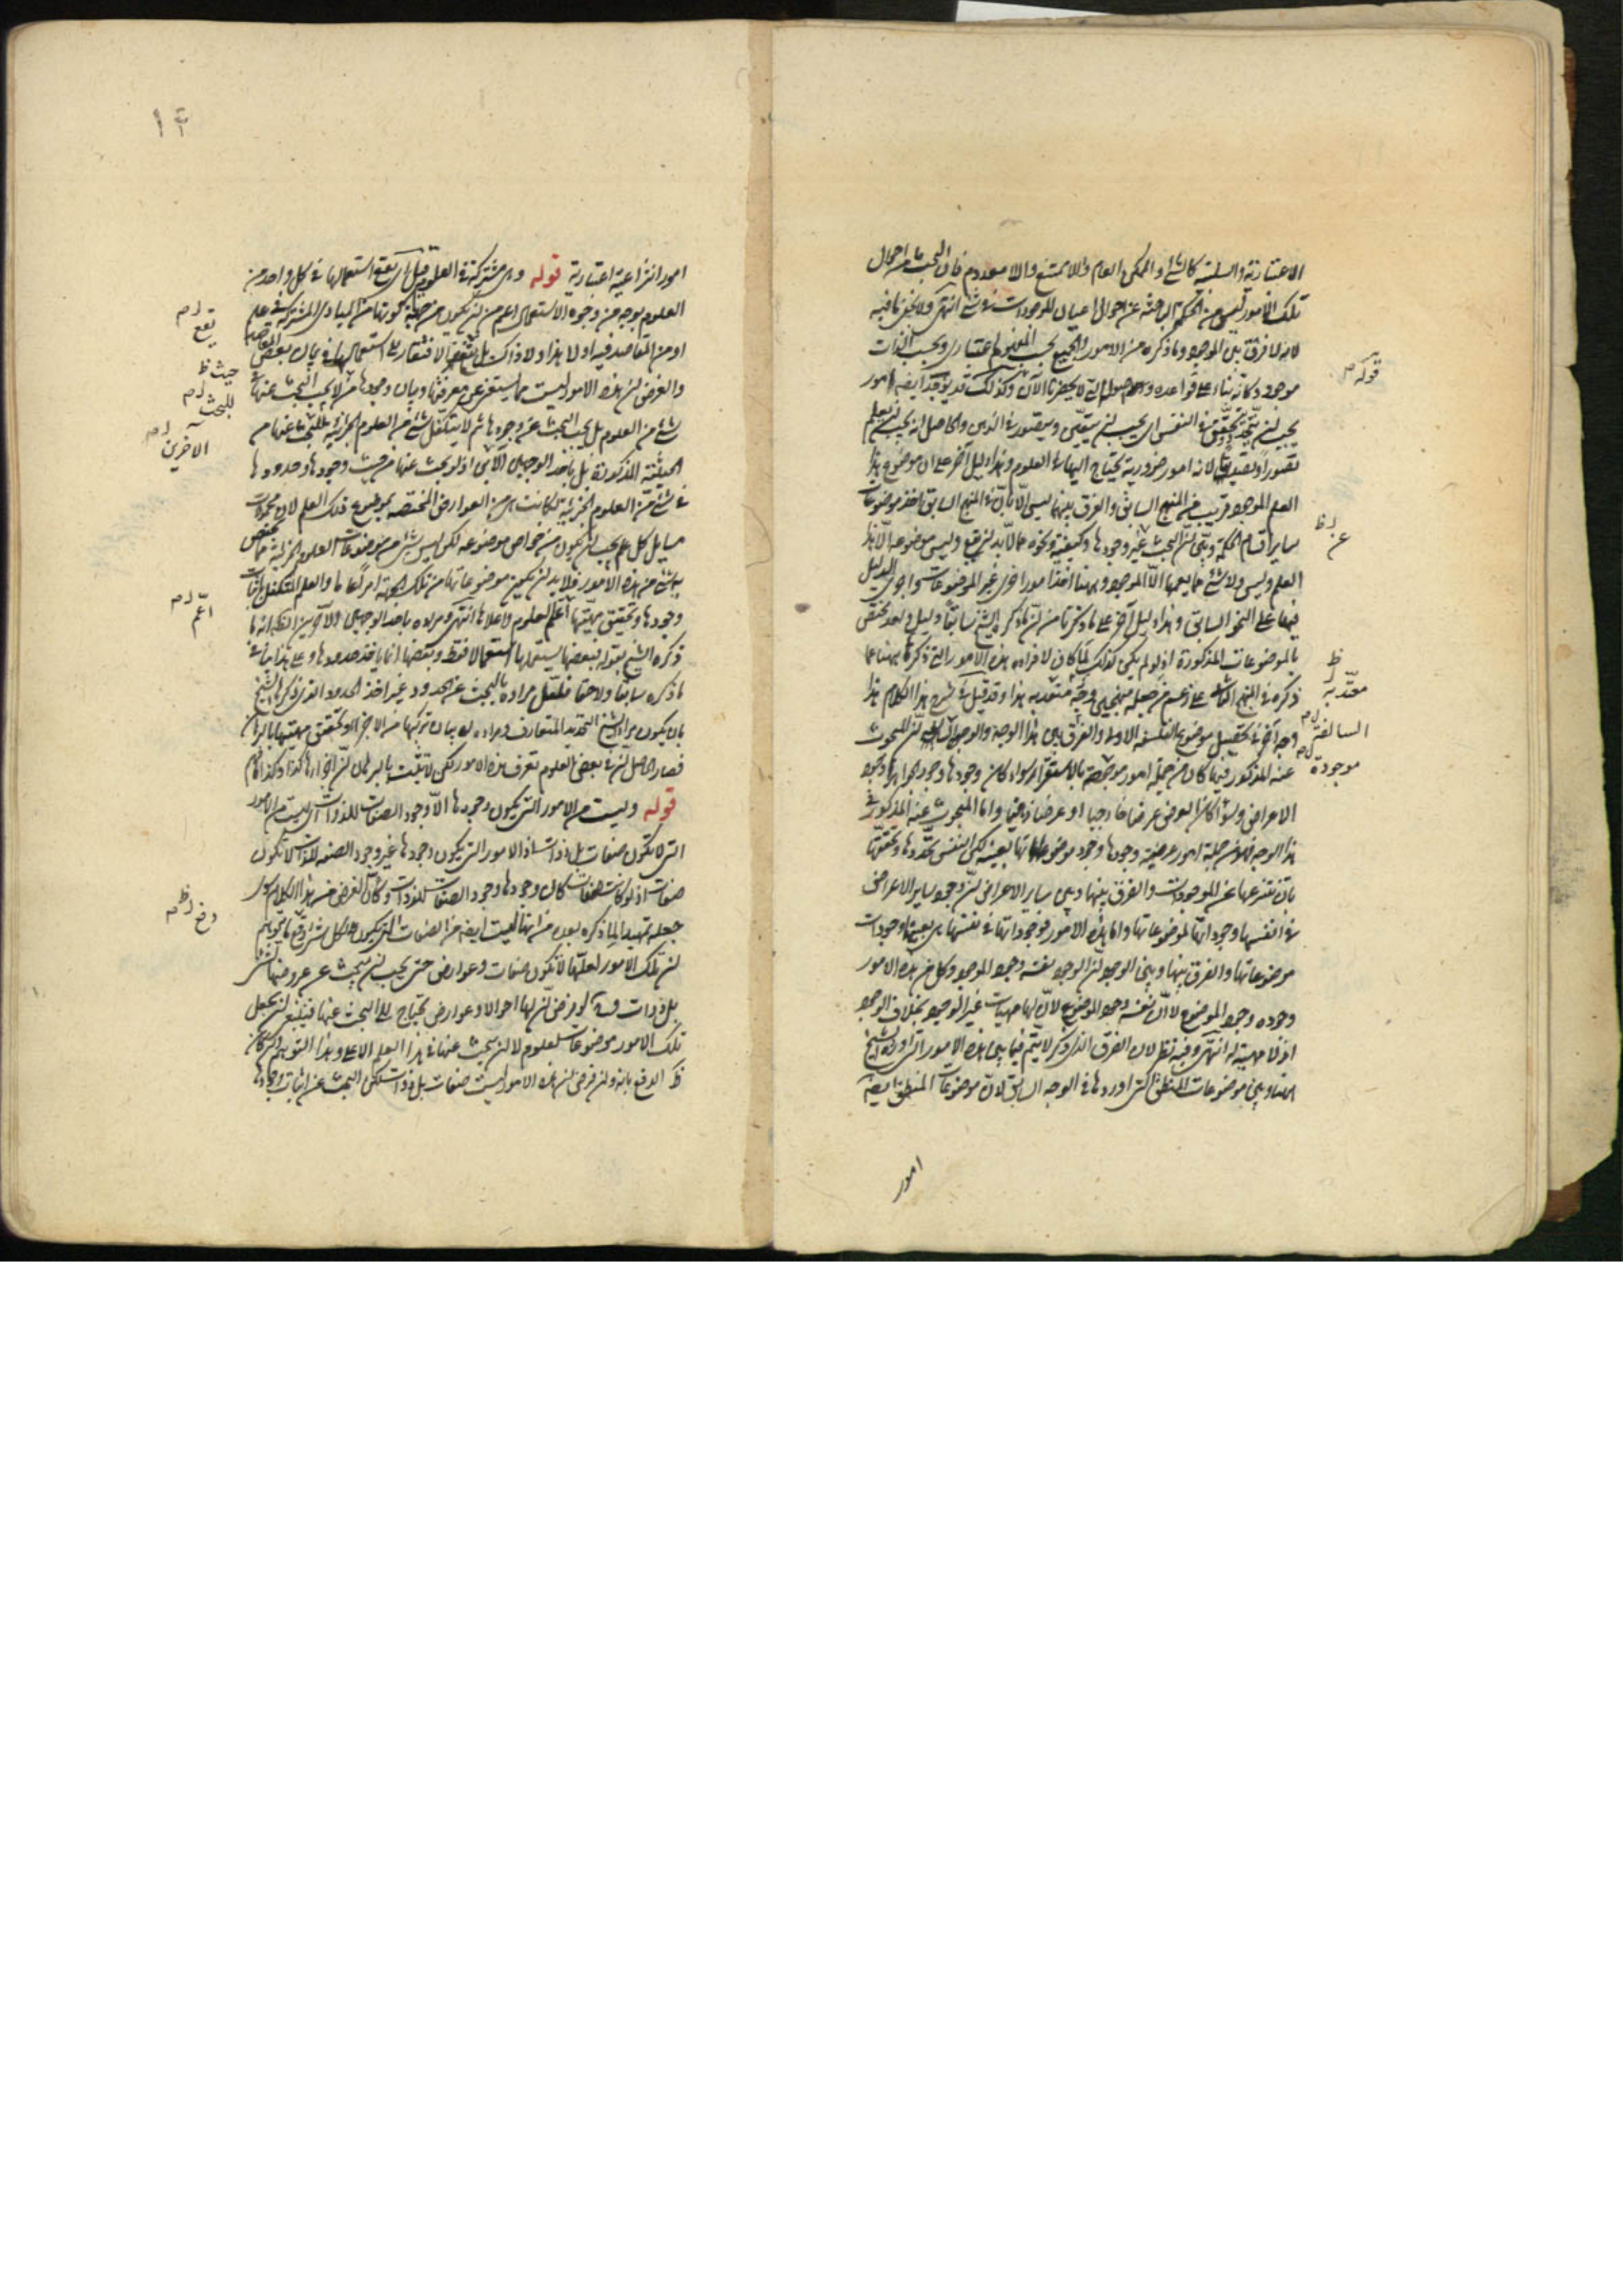 الاعتبارية والسلبية كالشئ والممكن العام واللاممتنع واللامعدوم فان البحث من احوال
تلك الامور ليس من الحكمة الباحثة عن احوال اعيان الموجودات فى شئ انتهى ولا يخفى ما فيه
لانه لا فرق بين الموجود وما ذكره من الامور والجميع بحسب المفهوم اعتبارى وبحسب الذات
موجود وكانه بناء على قواعده واصوله التى لا يحضرنا الآن وكذلك قد يوجد ايضا امور
يجب ان تتحدد وتتحقق فى النفس اى يجب ان يتعين ويتصور فى الذهن والحاصل انه يجب ان يعلم
تصورا وتصديقا لانه امور ضرورية يحتاج اليها فى العلوم وهذا دليل آخر على ان موضوع هذا
العلم الموجود قريب من المنهج السابق والفرق بينهما ليس الا بان فى المنهج السابق اخذ موضوعات
ساير اقسام الحكمة وبين ان البحث عن وجودها وكيفيته ونحوه مما لا بد ان يقع وليس موضعه الا هذا
العلم وليس ولا شئ مما يعمها الا الموجود وههنا اخذ امورا اخرى غير الموضوعات واجرى الدليل
فيها على النحو السابق وهذا دليل آخر على ما ذكرنا من ان ما ذكره الشيخ سابقا دليل واحد يختص
بالموضوعات المذكورة اذ لو لم يكن كذلك لما كان لافراد هذه الامور التى ذكرها ههنا عما
ذكره فى المنهج السابق على زعم من جعله منهجين وجه معتد به هذا وقد قيل فى شرح هذا الكلام هذا
وجه آخر فى تحصيل موضوع الفلسفة الاولى والفرق بين هذا الوجه والوجه السابق ان المبحوث
عنه المذكور فيما كان من جملة امور موجودة بالاستقرار سواء كان وجودها وجود الجواهر او وجود
الاعراض وسواء كان العرض عرضا خارجيا او عرضا ذهنيا واما المبحوث عنه المذكور فى
هذا الوجه فهو من جملة امور عرضية وجودها وجود موضوعاتها بعينه لكن النفس تحددها وتحققها
بان تنتزعها عن الموجودات والفرق بينها وبين ساير الاعراض ان وجود ساير الاعراض
فى انفسها وجوداتها لموضوعاتها واما هذه الامور فوجوداتها فى نفسها هى بعينها وجودات
موضوعاتها والفرق بينها وبين الوجود ان الوجود نفسه وجود الموجود وكل من هذه الامور
وجوده وجود الموضوع لا ان نفسه وجود الموضوع لان لها مهيات غير الوجود بخلاف الوجود
اذ لا مهية له انتهى وفيه نظر لان الفرق الذى ذكر لا يتم فيما بين هذه الامور التى اورده الشيخ
ههنا وبين موضوعات المنطق التى اوردها فى الوجه السابق لان موضوعات المنطق ايضا
امور
قوله م
عن ظ
معتد به ظ
السالفتين م
موجودة
امور انتزاعية اعتبارية قوله وهى مشتركة فى العلوم قيل اى يقع استعمالها فى كل واحد من
العلوم بوجه من وجوه الاستعمال اعم من ان يكون من جهة كونها من المبادى المشتركة فى علم
او من المقاصد فيه او لا هذا ولا ذاك بل يقع الافتقار الى استعمالها فى بيان بعض المقاصد
والغرض ان هذه الامور ليست مما يستغنى عن معرفتها وبيان وجودها من لا يجب البحث عنها فى
شئ من العلوم بل يجب البحث عن وجودها ثم لا يتكفل شئ من العلوم الجزئية للبحث عنها من
الحيثية المذكورة بل باحد الوجهين الآتى اذ لو بحث عنها من حيث وجودها وحدودها
فى شئ من العلوم الجزئية لكانت من العوارض المختصة بموضوع ذلك العلم لان محمولات
مسايل كل علم يجب ان يكون من خواص موضوعه لكن ليس شئ من موضوعات العلوم الجزئية مما يختص
به شئ من هذه الامور فلا بد ان يكون موضوعاتها من تلك الجهة امرا عاما والعلم المتكفل باثبات
وجودها وتحقيق مهيتها اعلم العلوم واعلاها انتهى ومراده باحد الوجهين الآخرين الظ انه ما
ذكره الشيخ بقوله فبعضها يستعملها استعمالا فقط وبعضها انما ياخذ حدودها وعلى هذا ينافى
ما ذكره سابقا ولاحقا فلعل مراده بالبحث عن الحدود غير اخذ الحدود الذى ذكره الشيخ
بان يكون مراد الشيخ التحديد المتعارف ومراده بيان تركبها من الاجزاء وتحقق مهيتها بالبرهان
فصار الحاصل ان فى بعض العلوم تعرف هذه الامور لكن لا يثبت بالبرهان ان اجزاءها كذا وكذا فافهم
قوله وليست من الامور التى يكون وجودها الا وجود الصفات للذوات اى ليست من الامور
التى لا تكون صفات بل ذوات اذ الامور التى يكون وجودها غير وجود الصفة للذات لا تكون
صفات اذ لو كانت صفات كان وجودها وجود الصفات للذوات وكان الغرض من هذا الكلام سوى
جعله تمهيدا لما ذكره بعد من انها ليست ايضا من الصفات التى يكون لكل شئ دفع ما يتوهم
ان تلك الامور لعلها لا تكون صفات وعوارض حتى يجب ان يبحث عن عروضها لشئ
بل ذوات ولو فرض ان لها احوالا وعوارض يحتاج الى البحث عنها فينبغى ان يجعل
تلك الامور موضوعات لعلوم لا ان يبحث عنها فى هذا العلم الاعلى وهذا التوهم وان كان
ظ الدفع بانه وان فرض ان هذه الامور ليست صفات بل ذوات لكن البحث عن اثبات وجودها
يقع م
حيث ظ
للبحث م
الآخرين م
اعم م
دفع ظ م